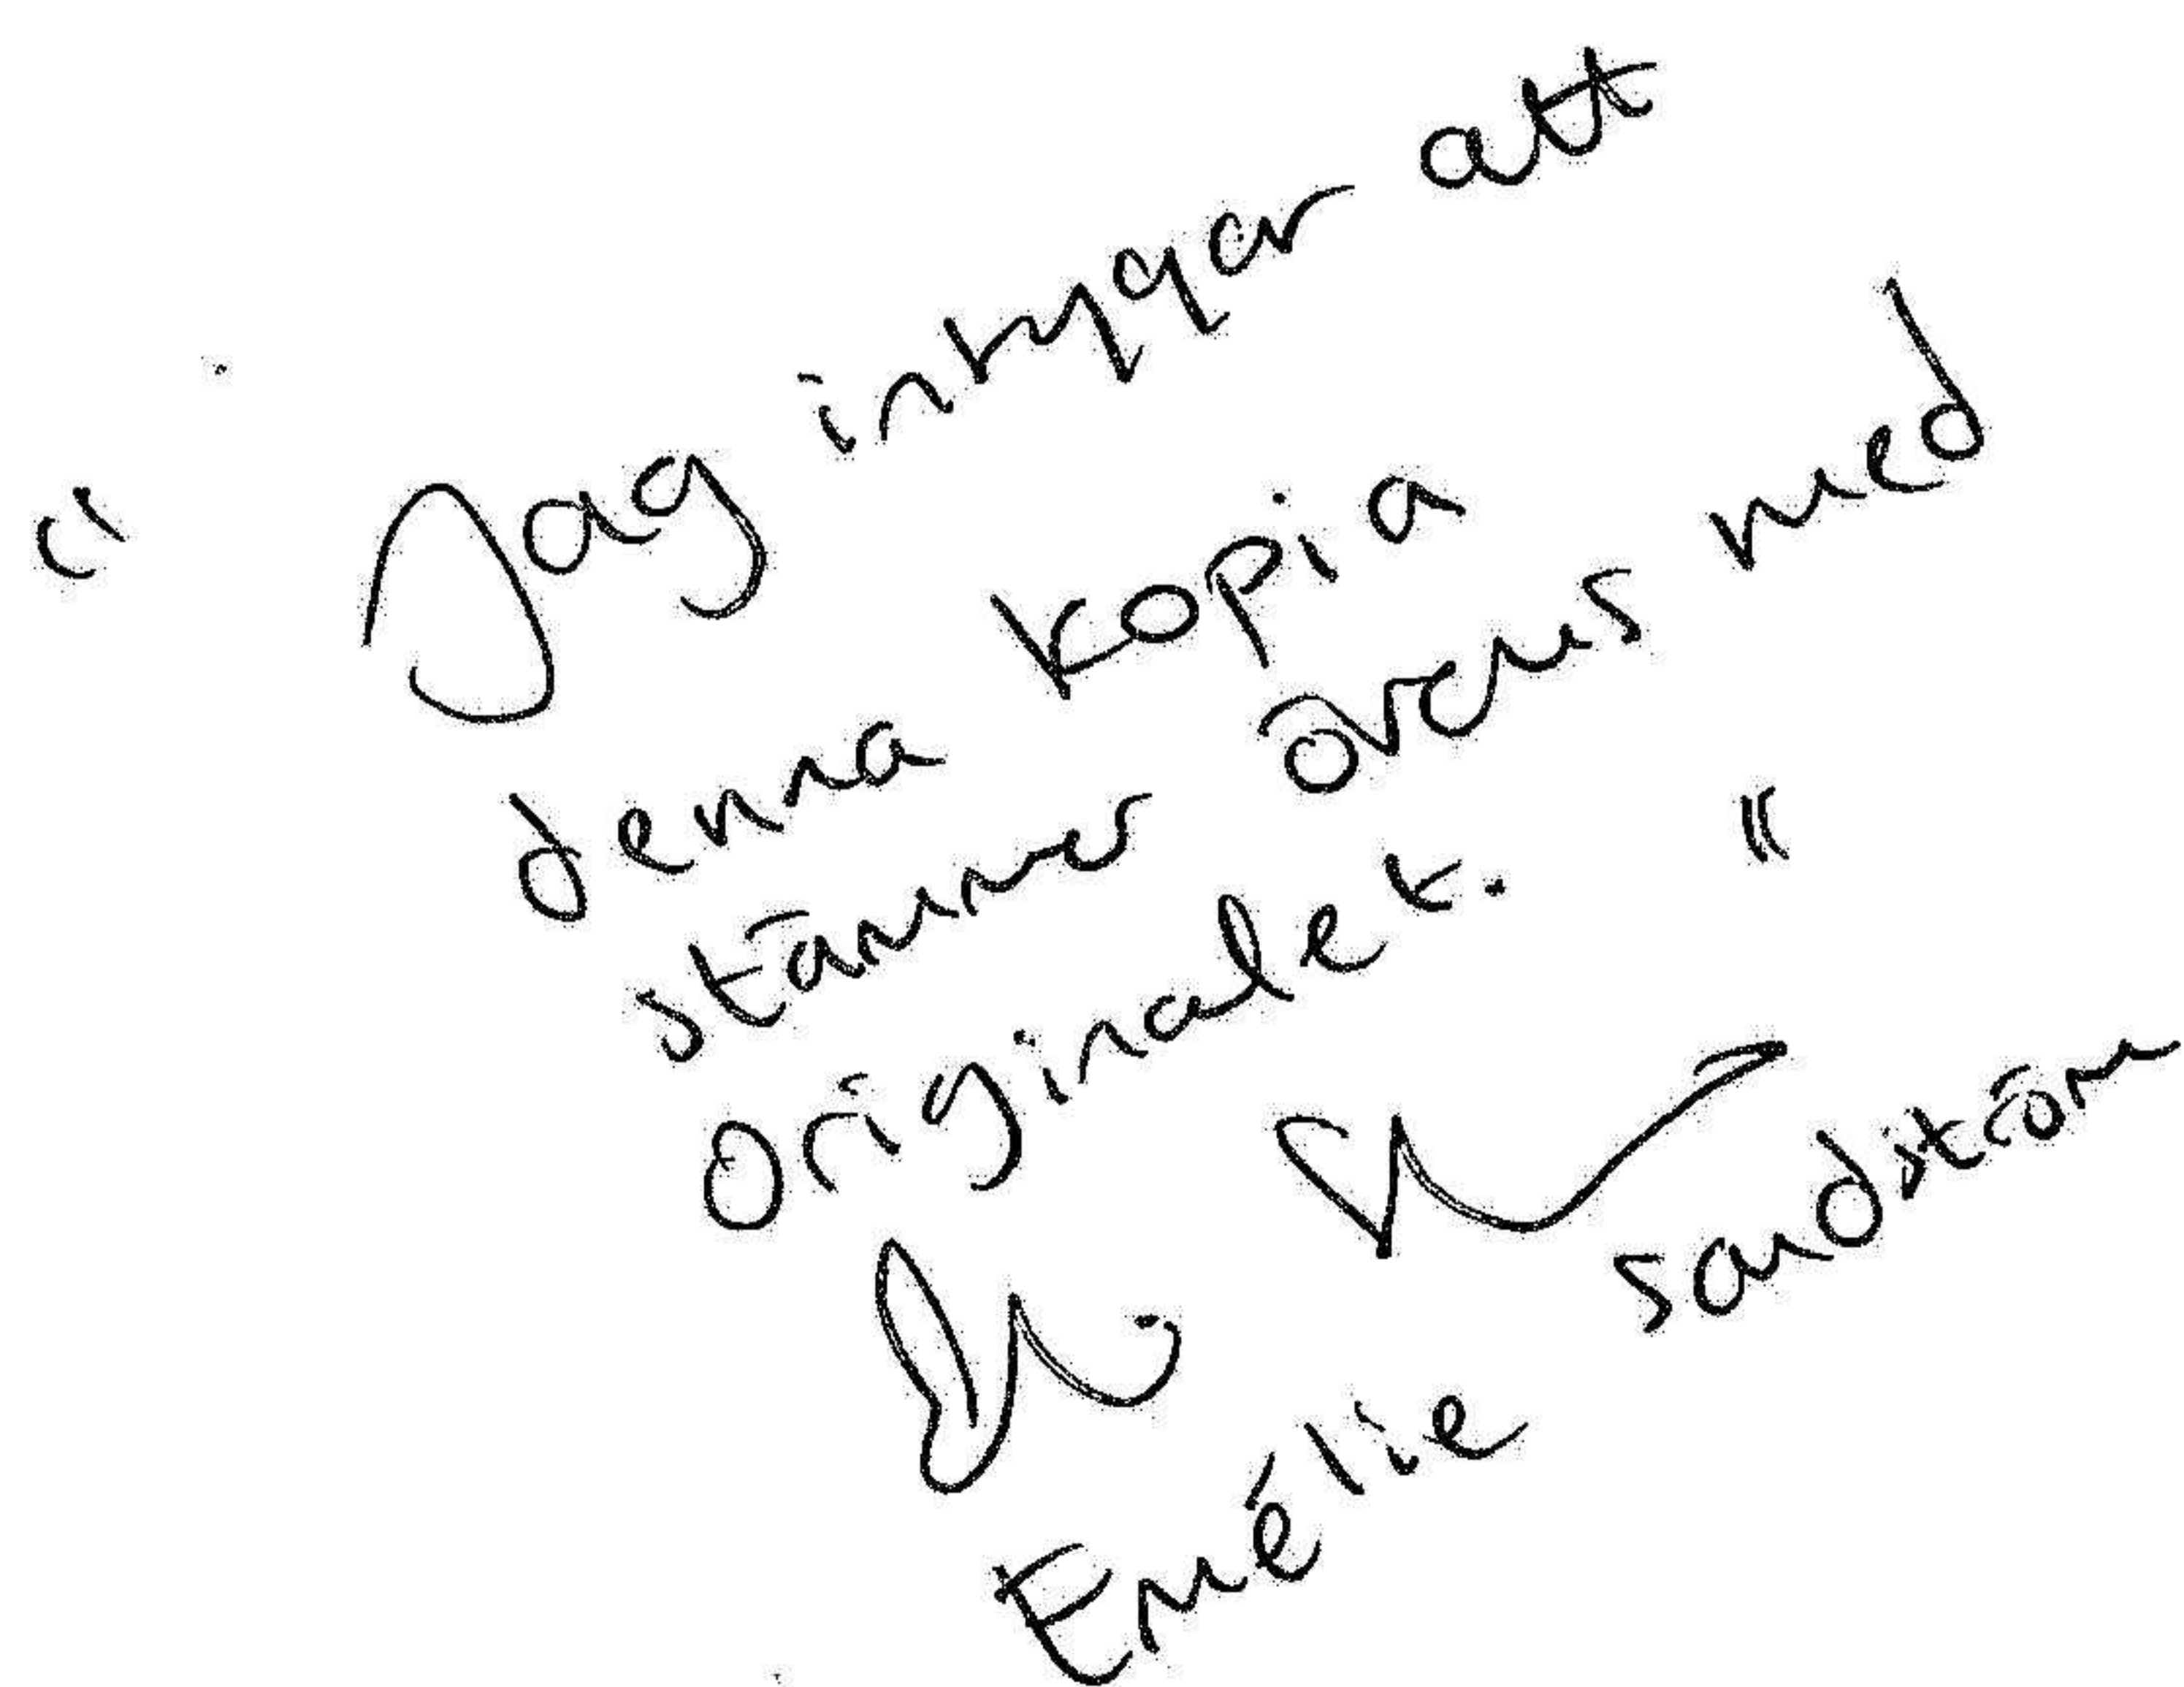 " Jag intygar att
denna kopia
stämmer överens med
originalet. "
Emélie Sandström